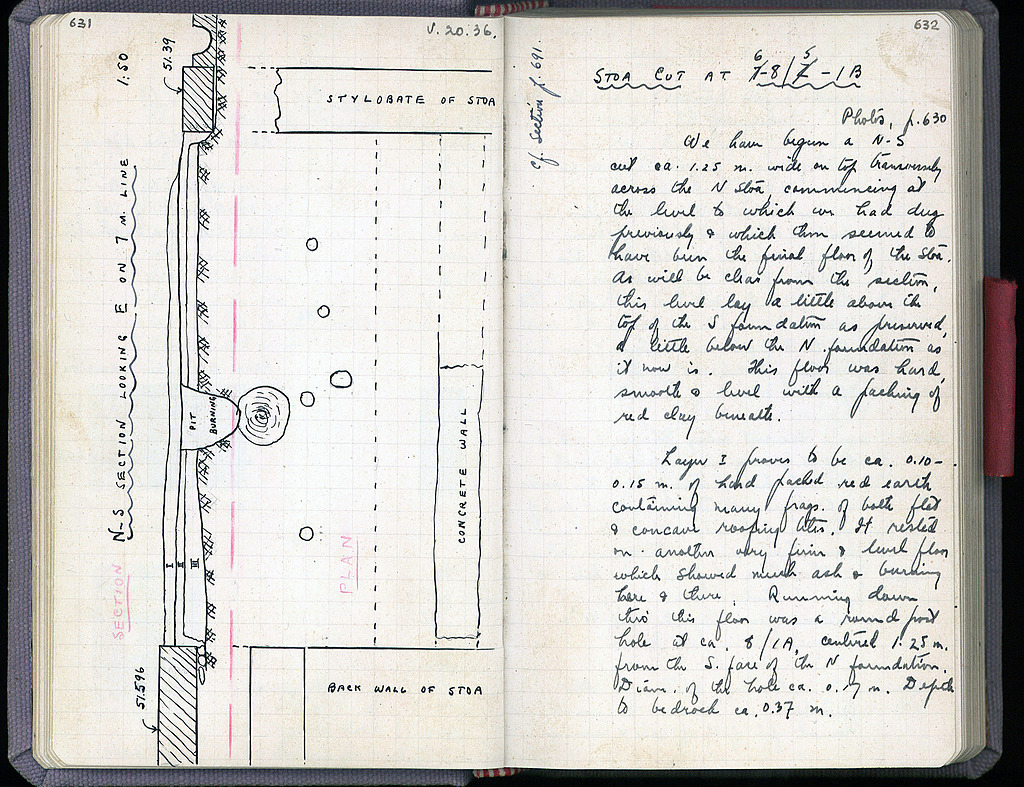 631
V. 20. 36.
1:50
51.39
STYLOBATE OF STOA
N-S SECTION LOOKING E ON 7 M. LINE
SECTION
PIT
BURNING
I
II
III
PLAN
CONCRETE WALL
51.596
BACK WALL OF STOA
632
cf. Section p. 691.
6 5
STOA CUT AT 7-8/Z-1B
Photos, p. 630
We have begun a N-S
cut ca. 1.25 m. wide on top transversely
across the N Stoa, commencing at
the level to which we had dug
previously & which then seemed to
have been the final floor of the Stoa.
As will be clear from the section,
this level lay a little above the
top of the S foundation as preserved,
a little below the N foundation as
it now is. This floor was hard,
smooth & level with a packing of
red clay beneath.
Layer I proves to be ca. 0.10-
0.15 m. of hard packed red earth
containing many frags. of both flat
& concave roofing tiles. It rested
on another very firm & level floor
which showed much ash & burning
here & there. Running down
thro this floor was a round post
hole at ca. 8/1A, centered 1.25 m.
from the S. face of the N foundation.
Diam. of the hole ca. 0.17 m. Depth
to bedrock ca. 0.37 m.